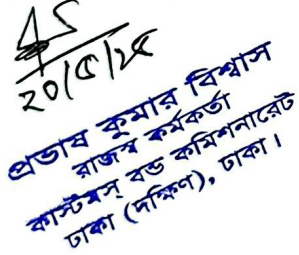 ২০/৫/২৫
প্রভাষ কুমার বিশ্বাস
রাজস্ব কর্মকর্তা
কাস্টমস্ বন্ড কমিশনারেট
ঢাকা (দক্ষিণ), ঢাকা।